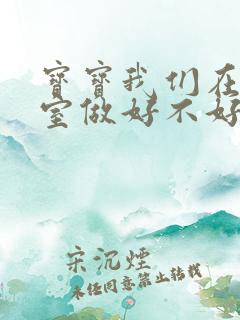 宝宝我们在
室做好不好
宋沉烟
未经同意禁止转载